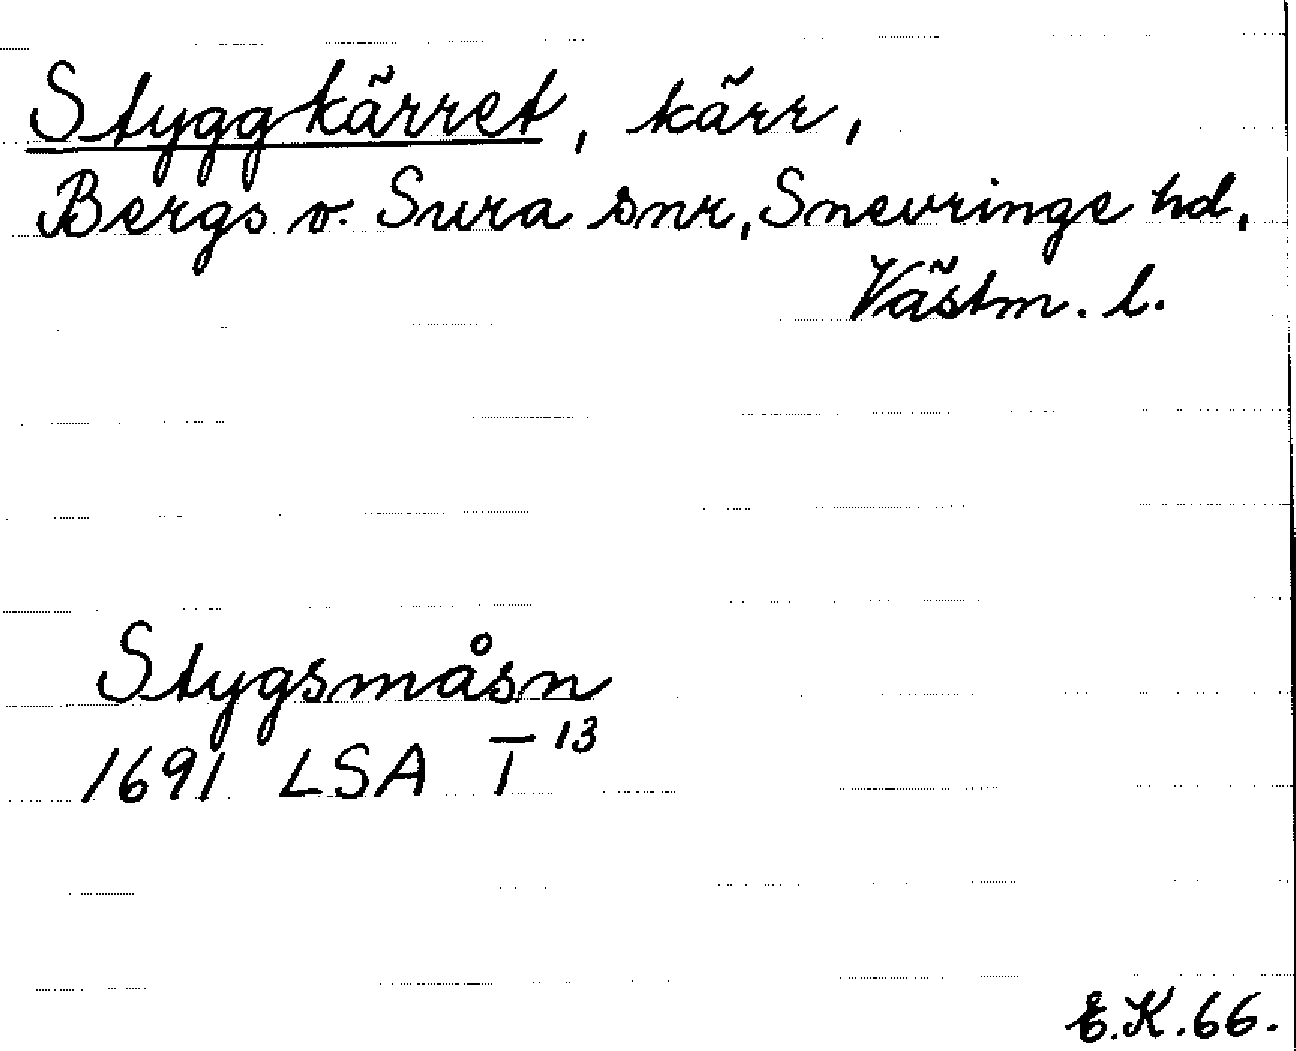 Styggkärret, kärr,
Bergs o. Sura snr, Snevringe hd,
Västm. l.
Stygsmåsn
1691 LSA T 13
E.K.66.